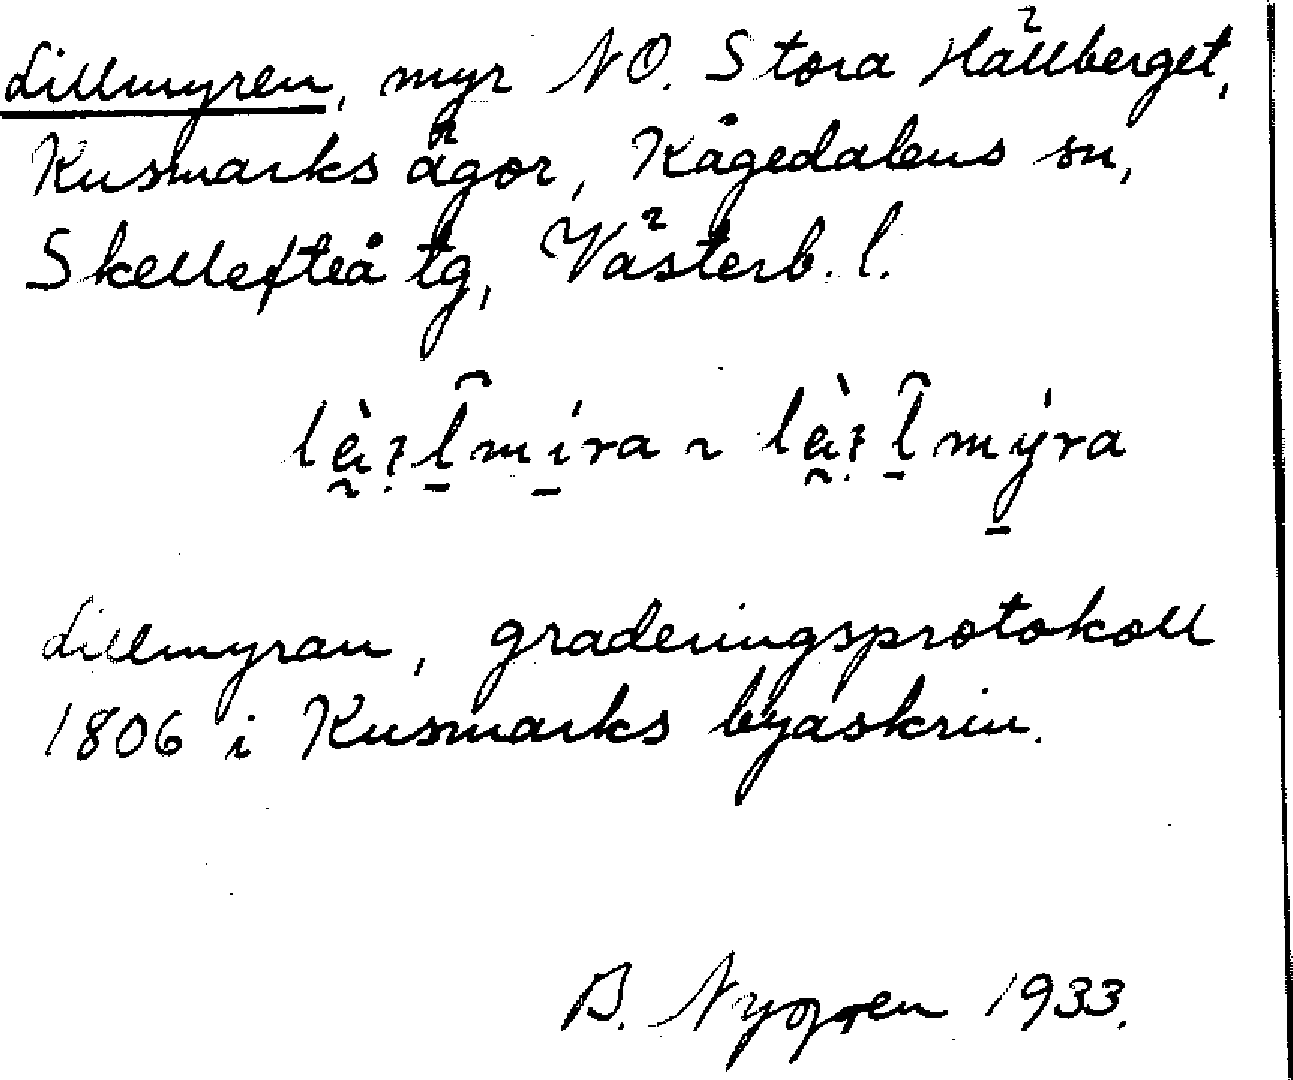 Lillmyren, myr NO. Stora Hällberget,
Kusmarks ägor, Kågedalens sn,
Skellefteå tg, Västerb. l.
Lillmyran, graderingsprotokoll
1806 i Kusmarks byaskrin.
B. Nygren 1933.